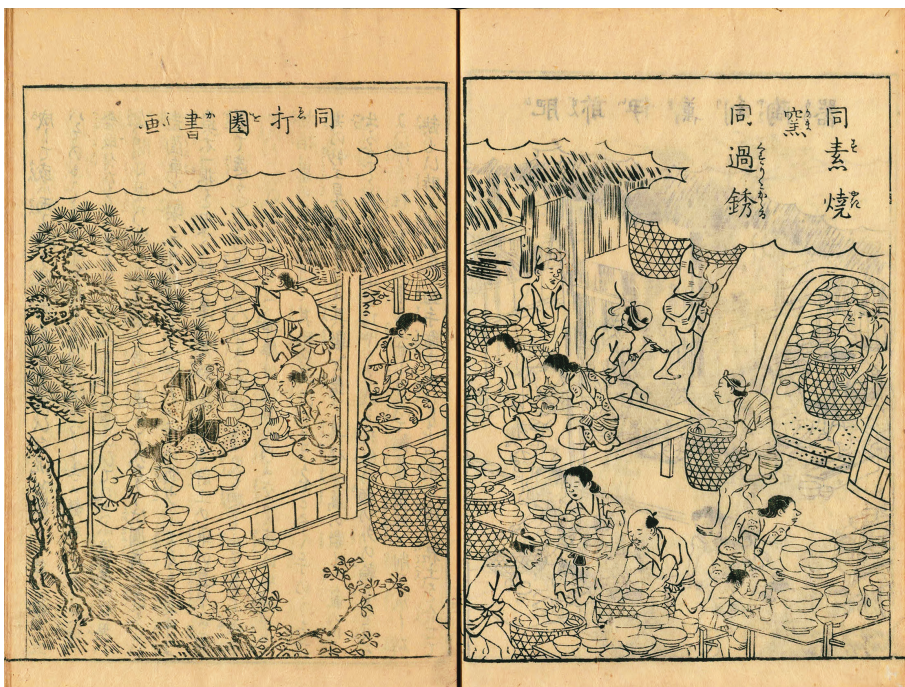 同素燒
窯
同過銹
同打圏書画